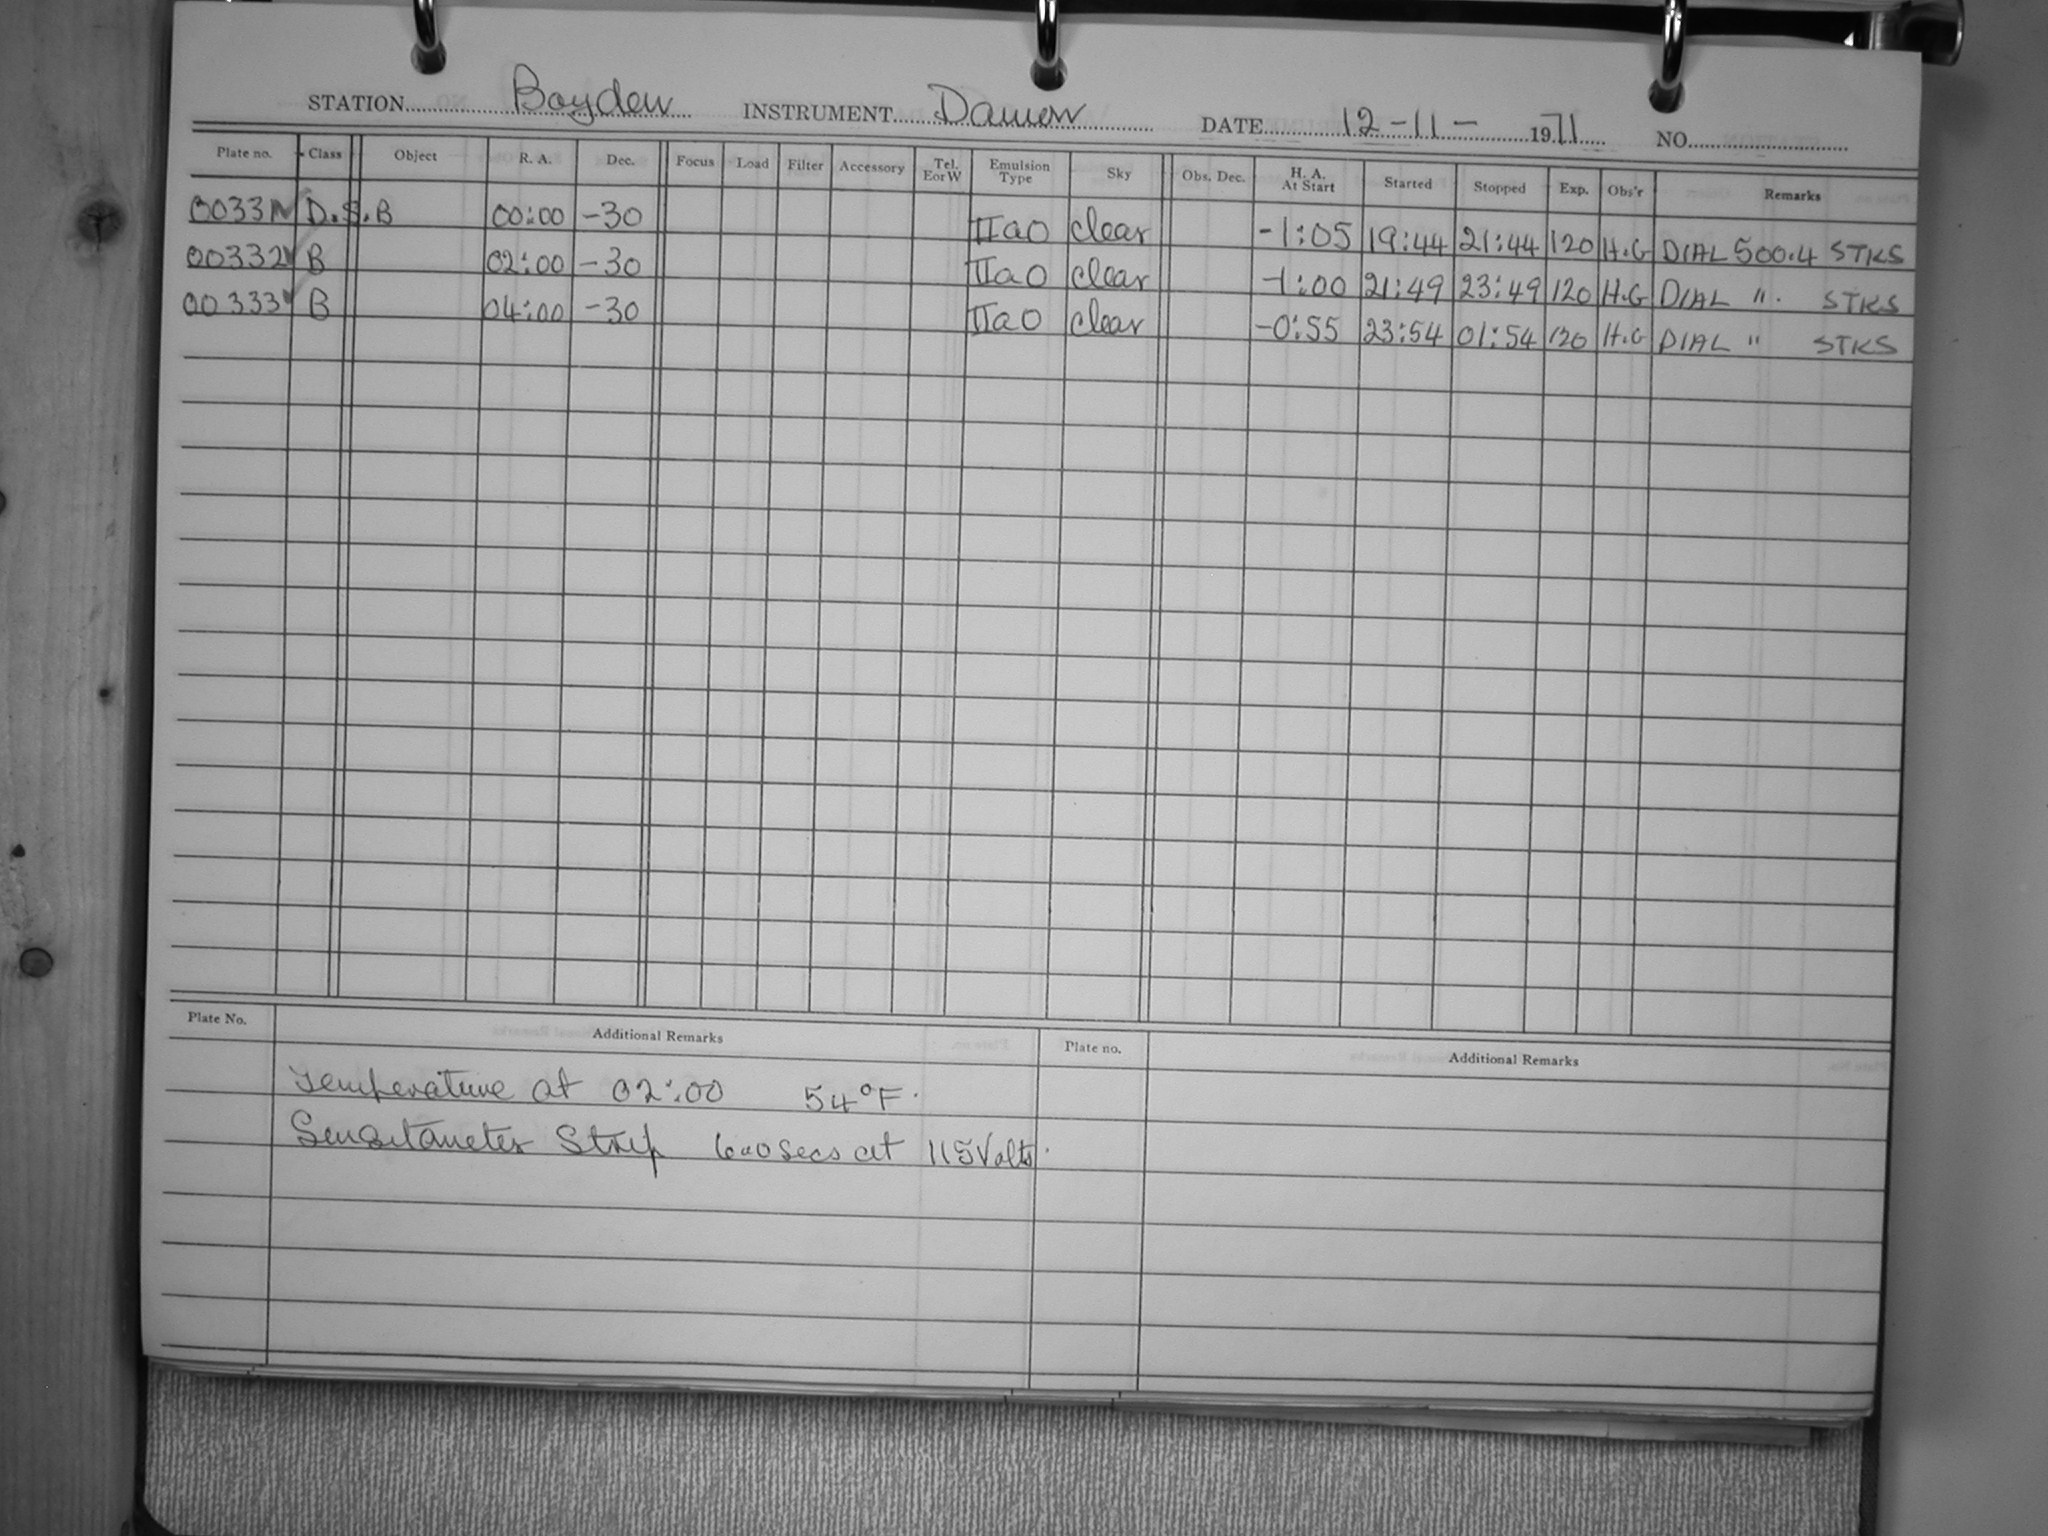 STATION Boyden INSTRUMENT Damon DATE 12-11- 1971 NO.
Plate no. Class Object R. A. Dec. Focus Load Filter Accessory Tel. E or W Emulsion Type Sky Obs. Dec. H. A. At Start Started Stopped Exp. Obs'r Remarks
00331 D.S.B 00:00 -30 IIaO clear -1:05 19:44 21:44 120 H.G DIAL 500.4 STKS
00332 B 02:00 -30 IIaO clear -1:00 21:49 23:49 120 H.G DIAL ". STKS
00333 B 04:00 -30 IIaO clear -0:55 23:54 01:54 120 H.G DIAL " STKS
Plate No. Additional Remarks Plate no. Additional Remarks
Temperature at 02:00 54°F.
Sensitometer Strip 600 Secs at 115 Volts.